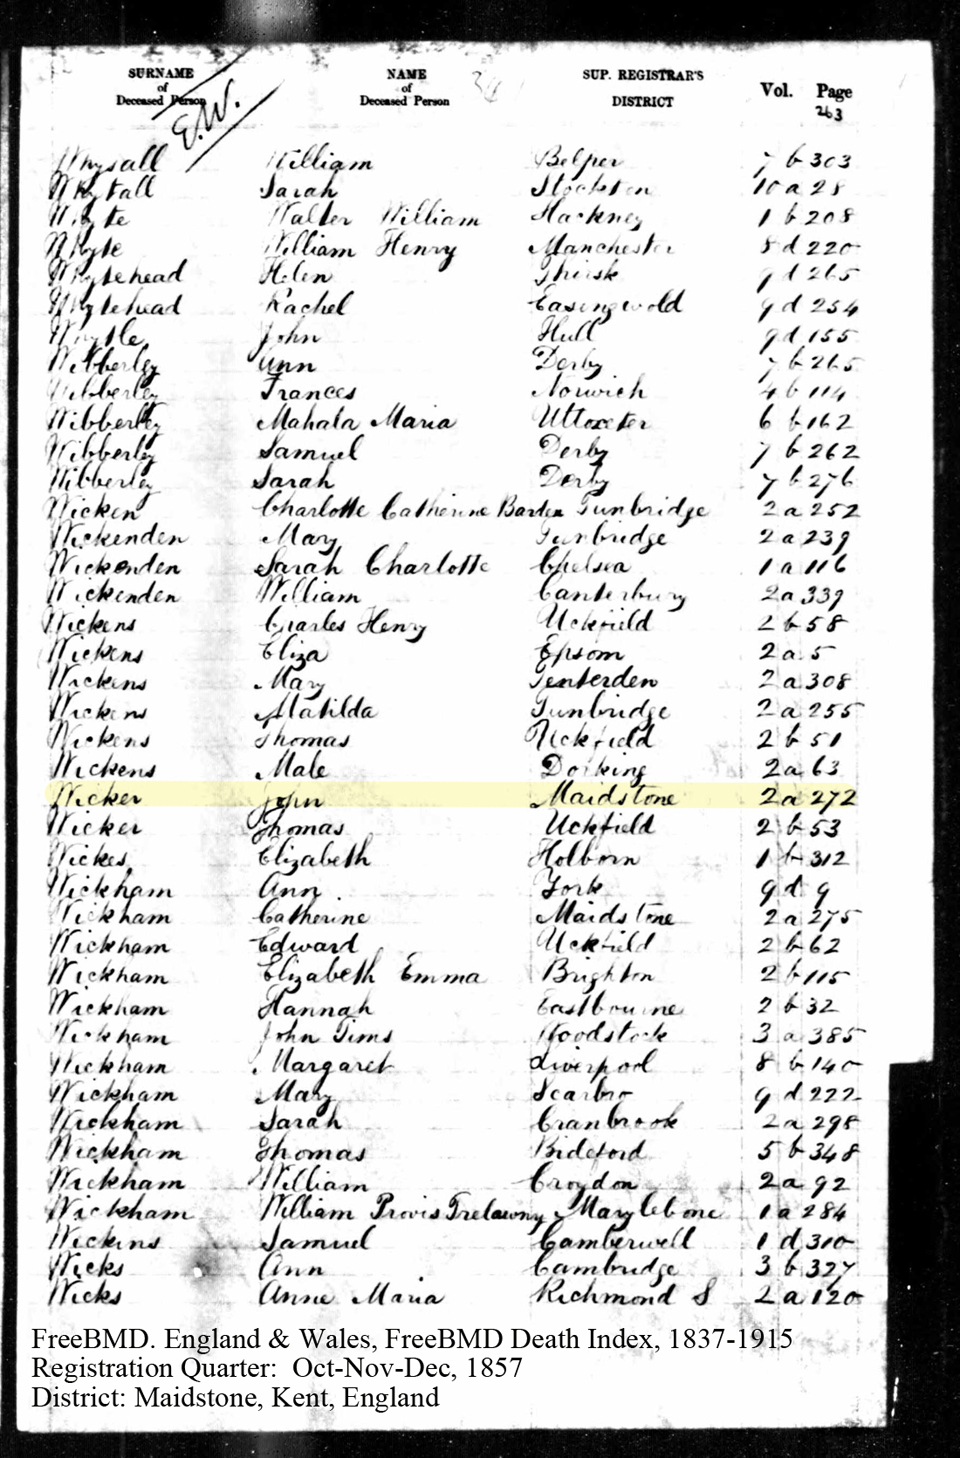 SURNAME of Deceased Person
NAME of Deceased Person
SUP. REGISTRAR'S DISTRICT
Vol. Page
E.W.
263
Whysall William Belper 7 b 303
Whytall Sarah Stockton 10 a 28
Whyte Walter William Hackney 1 b 208
Whyte William Henry Manchester 8 d 220
Whytehead Helen Thirsk 9 d 265
Whytehead Rachel Easingwold 9 d 254
Whytle John Hull 9 d 155
Wibberley Ann Derby 7 b 265
Wibberley Frances Norwich 4 b 114
Wibberley Mahala Maria Uttoxeter 6 b 162
Wibberley Samuel Derby 7 b 262
Wibberley Sarah Derby 7 b 276
Wicken Charlotte Catherine Barden Tunbridge 2 a 252
Wickenden Mary Tunbridge 2 a 239
Wickenden Sarah Charlotte Chelsea 1 a 116
Wickenden William Canterbury 2 a 339
Wickens Charles Henry Uckfield 2 b 58
Wickens Eliza Epsom 2 a 5
Wickens Mary Tenterden 2 a 308
Wickens Matilda Tunbridge 2 a 255
Wickens Thomas Uckfield 2 b 51
Wickens Male Dorking 2 a 63
Wicker John Maidstone 2 a 272
Wicker Thomas Uckfield 2 b 53
Wickes Elizabeth Holborn 1 b 312
Wickham Ann York 9 d 9
Wickham Catherine Maidstone 2 a 275
Wickham Edward Uckfield 2 b 62
Wickham Elizabeth Emma Brighton 2 b 115
Wickham Hannah Eastbourne 2 b 32
Wickham John Tims Woodstock 3 a 385
Wickham Margaret Liverpool 8 b 140
Wickham Mary Scarbro 9 d 222
Wickham Sarah Cranbrook 2 a 298
Wickham Thomas Bideford 5 b 348
Wickham William Croydon 2 a 92
Wickham William Provis Trelawny Marylebone 1 a 284
Wickins Samuel Camberwell 1 d 310
Wicks Ann Cambridge 3 b 327
Wicks Anne Maria Richmond S 2 a 120
FreeBMD. England & Wales, FreeBMD Death Index, 1837-1915
Registration Quarter: Oct-Nov-Dec, 1857
District: Maidstone, Kent, England